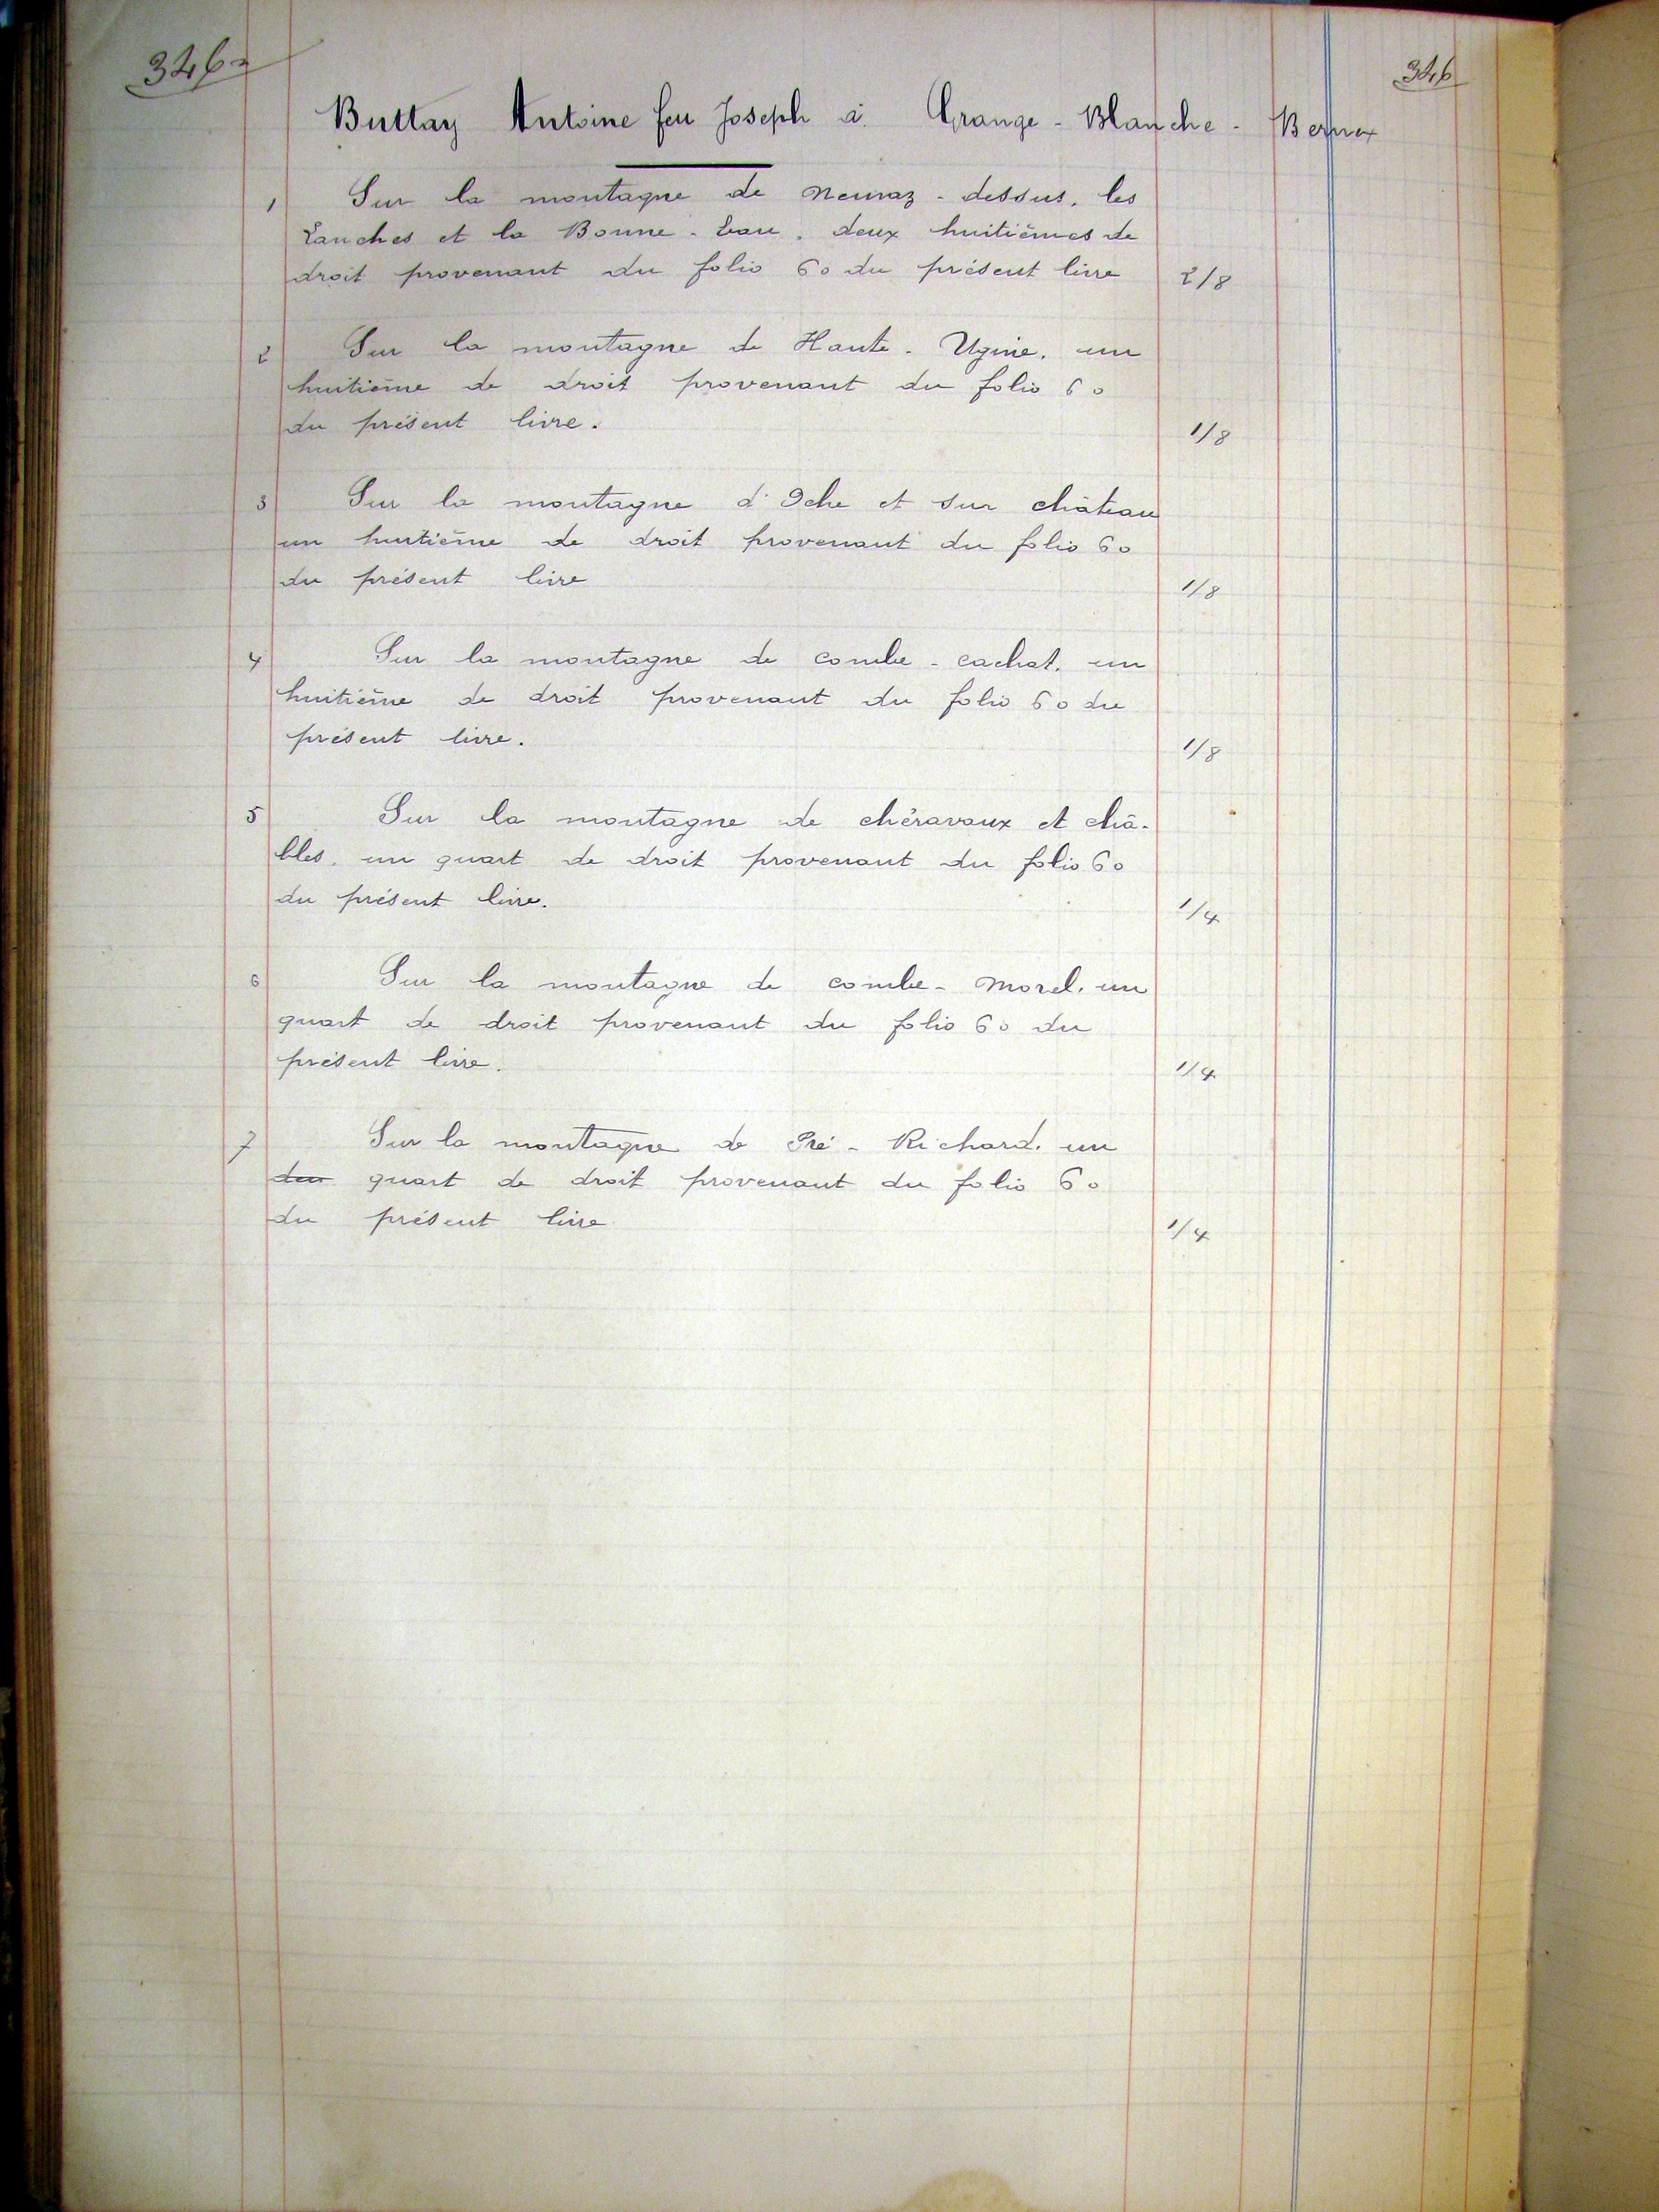 346
346
Buttay Antoine feu Joseph à Grange-Blanche-Bernex
1 Sur la montagne de Neuvaz-dessus, les
Lanches et la Bonne-Eau, deux huitièmes de
droit provenant du folio 60 du présent livre 2/8
2 Sur la montagne de Haute-Ugine, un
huitième de droit provenant du folio 60
du présent livre. 1/8
3 Sur la montagne d'Oche et sur château
un huitième de droit provenant du folio 60
du présent livre 1/8
4 Sur la montagne de combe-cachat, un
huitième de droit provenant du folio 60 du
présent livre. 1/8
5 Sur la montagne de chéravaux et châ-
bles, un quart de droit provenant du folio 60
du présent livre. 1/4
6 Sur la montagne de combe-Morel, un
quart de droit provenant du folio 60 du
présent livre. 1/4
7 Sur la montagne de Pré-Richard, un
quart de droit provenant du folio 60
du présent livre 1/4